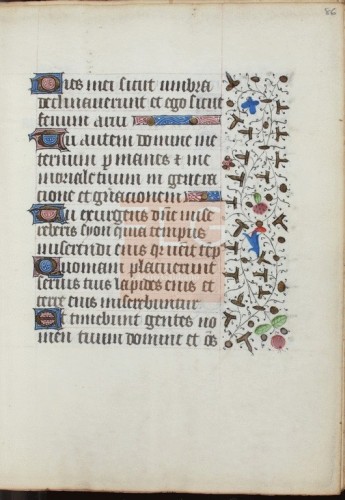 86
Dies mei sicut umbra
declinaverunt et ego sicut
fenum arui
Tu autem domine in e
ternum pmanes & me
moriale tuum in genera
cione et gnacionem
Tu exurgens dne mise
reberis syon quia tempus
miserendi eius q venit tep
Quoniam placuerunt
servis tuis lapides eius et
terre eius miserebuntur
Et timebunt gentes no
men tuum domine et os